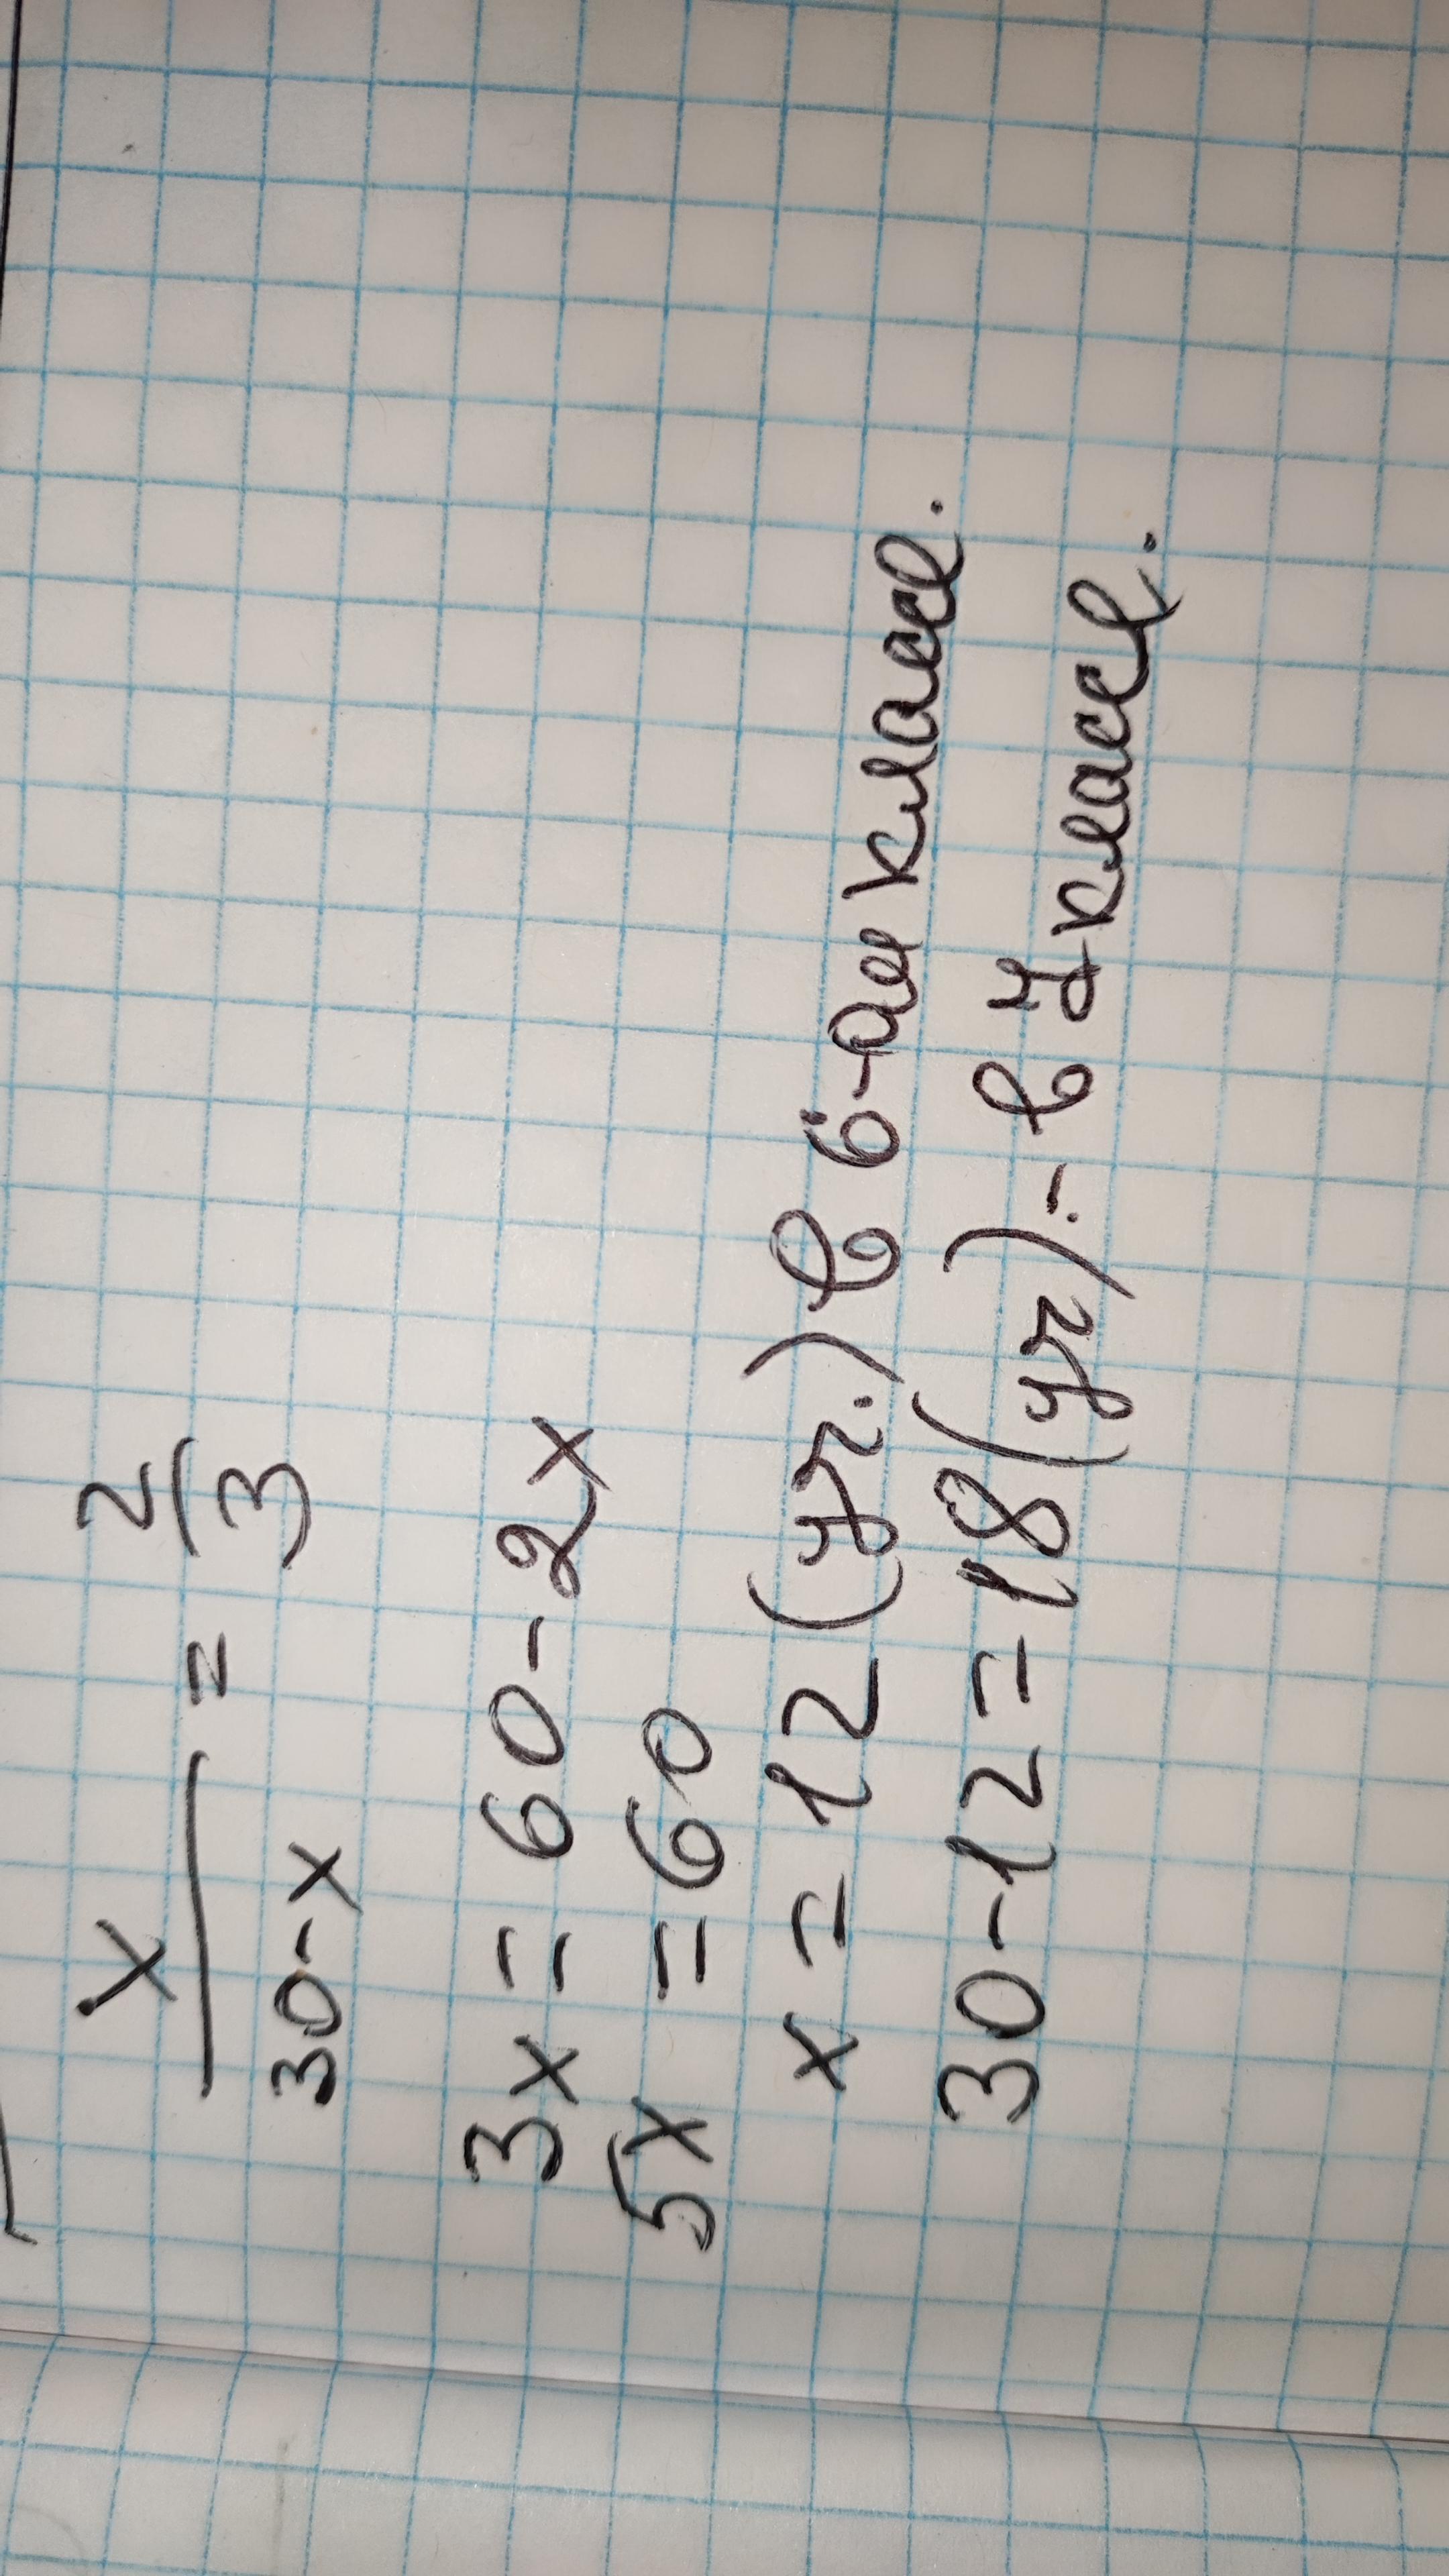 x/30-x = 2/3
3x = 60-2x
5x = 60
x = 12 (уч.) в 6-ом классе.
30-12 = 18 (уч) - в у классе.